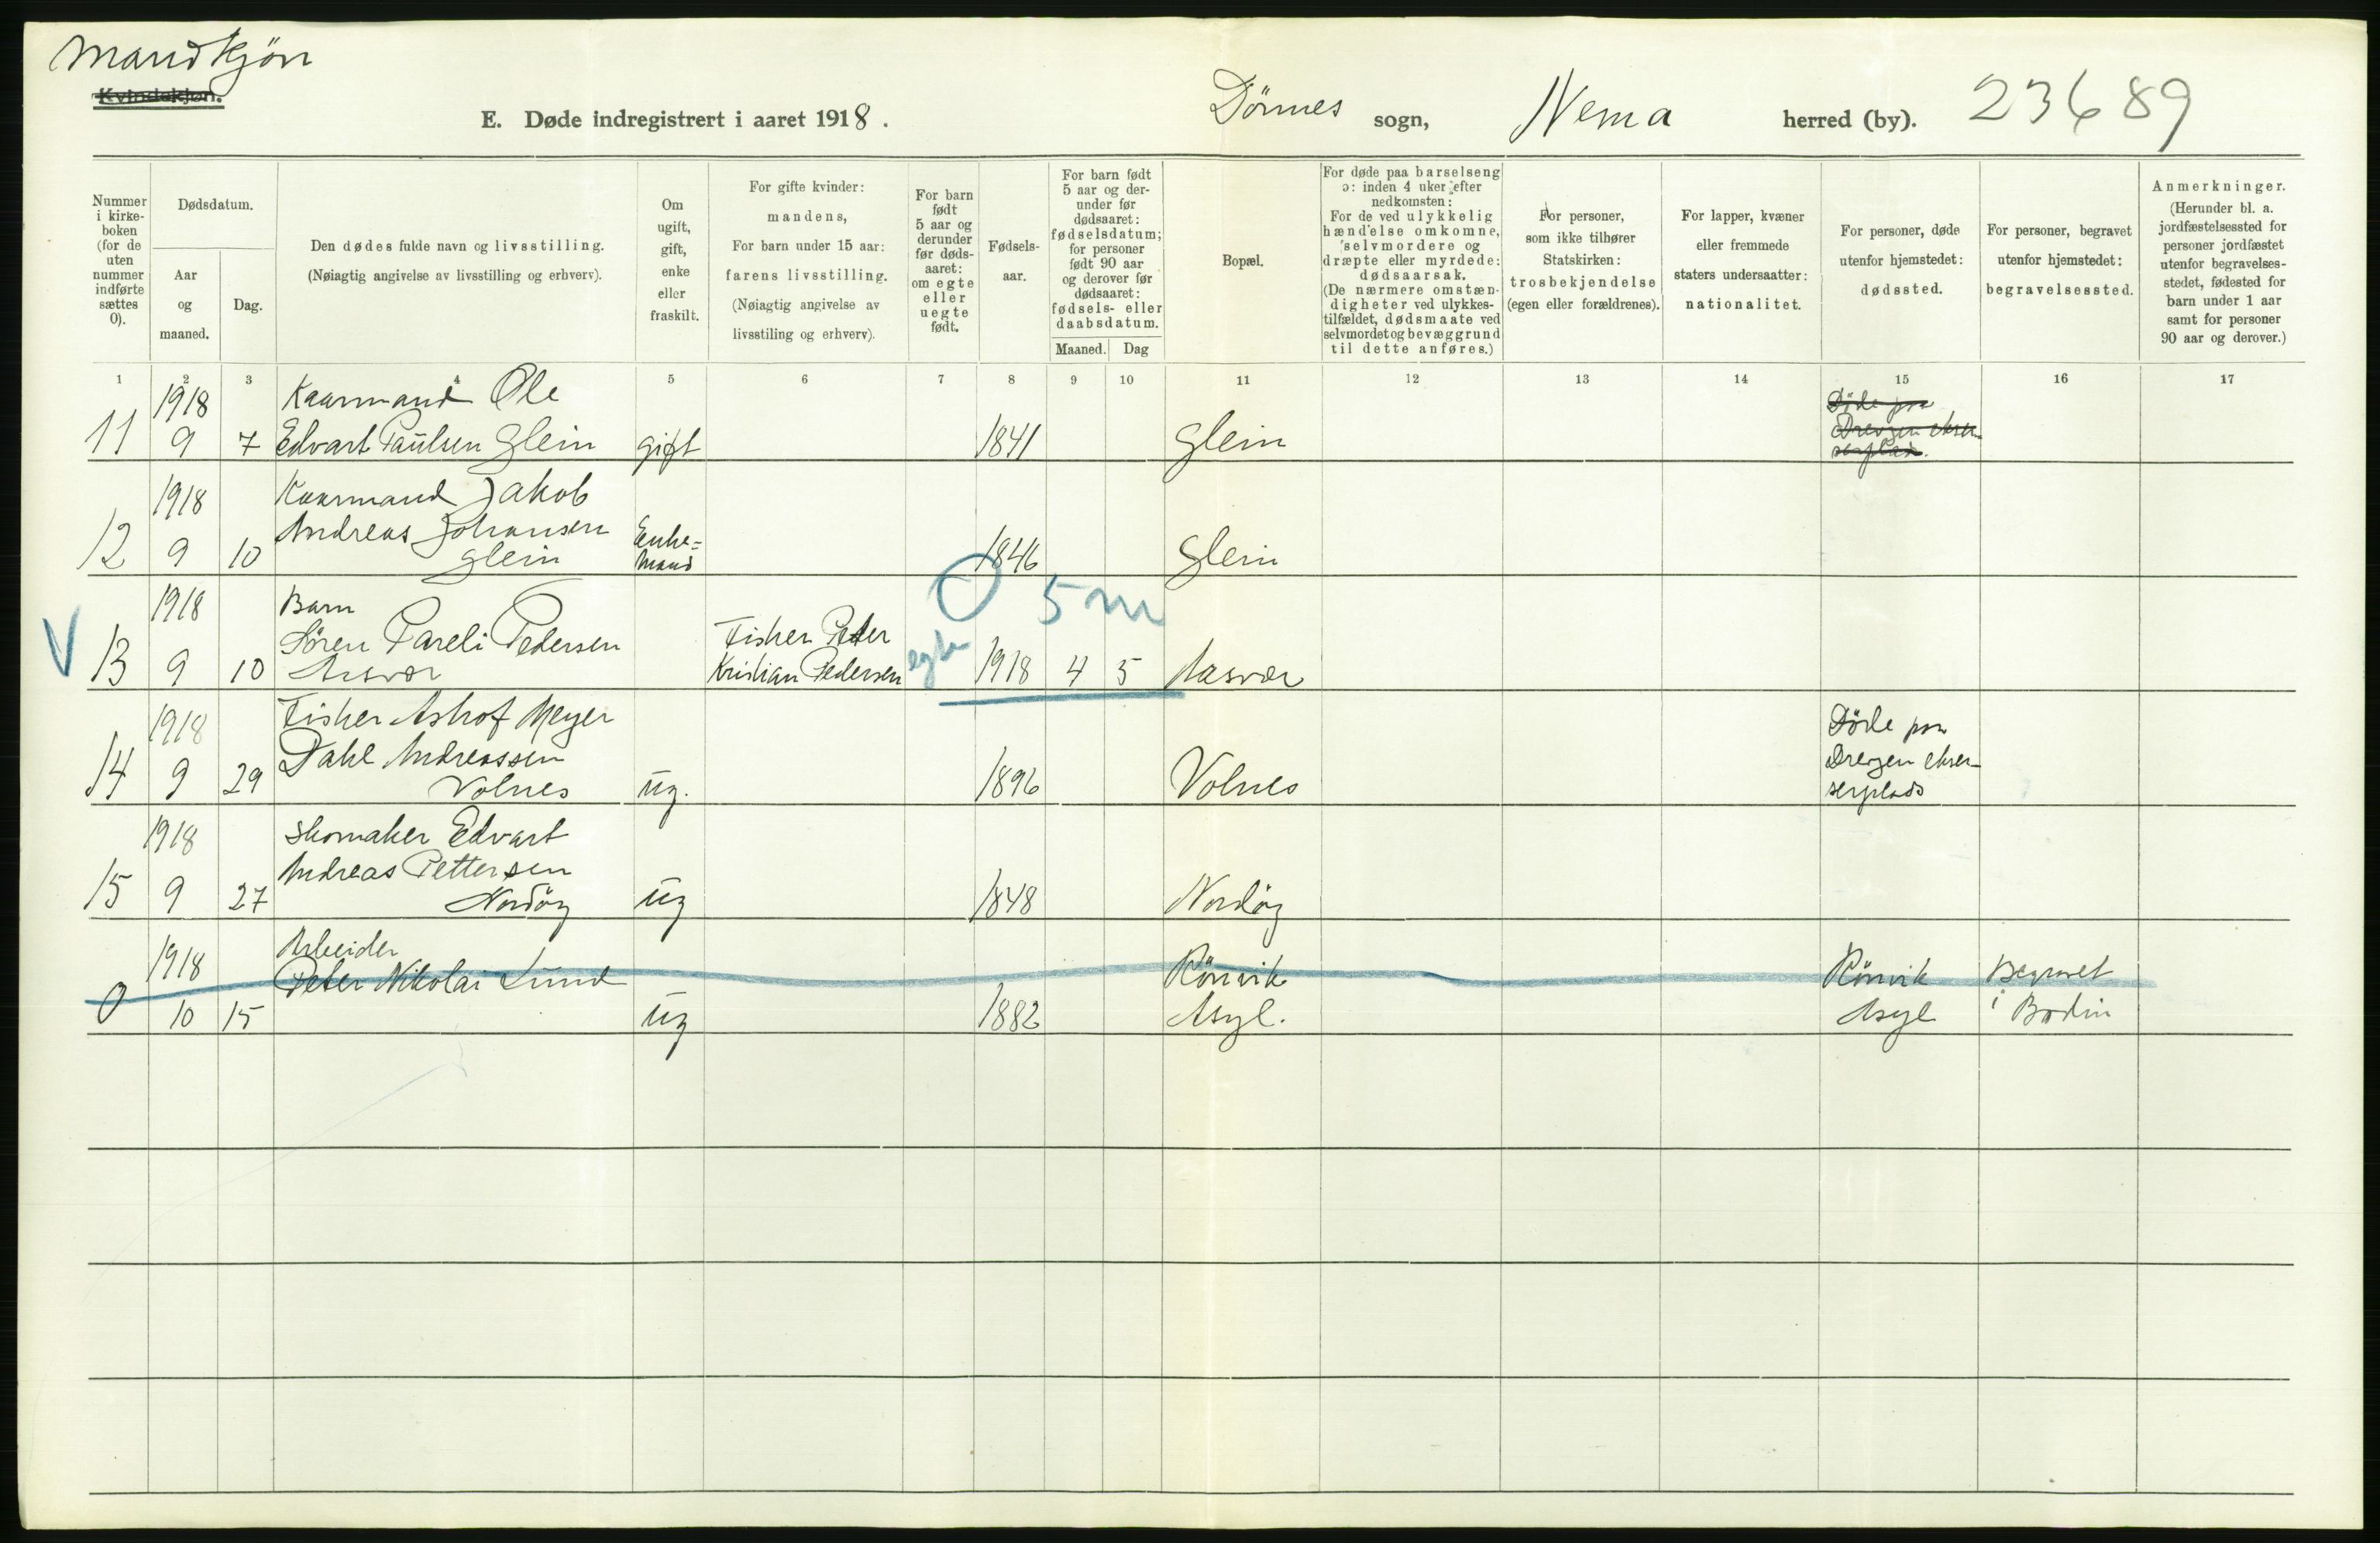 Mandkjön
Kvindekjøn.
E. Døde indregistrert i aaret 1918.
Dönnes sogn, Nesna herred (by). 23689
Nummer i kirke-boken (for de uten nummer indførte sættes 0).
Dødsdatum.
Aar og maaned.
Dag.
Den dødes fulde navn og livsstilling.
(Nøiagtig angivelse av livsstilling og erhverv).
Om ugift, gift, enke eller fraskilt.
For gifte kvinder:
mandens,
For barn under 15 aar:
farens livsstilling.
(Nøiagtig angivelse av
livsstiling og erhverv).
For barn født 5 aar og derunder før døds-aaret: om egte eller uegte født.
Fødsels-aar.
For barn født
5 aar og der-
under før
dødsaaret:
fødselsdatum;
for personer
født 90 aar
og derover før
dødsaaret:
fødsels- eller
daabsdatum.
Maaned. Dag
Bopæl.
For døde paa barselseng
ɔ: inden 4 uker efter
nedkomsten:
For de ved ulykkelig
hændelse omkomne,
selvmordere og
dræpte eller myrdede:
dødsaarsak.
(De nærmere omstæn-
digheter ved ulykkes-
tilfældet, dødsmaate ved
selvmordet og bevæggrund
til dette anføres.)
For personer,
som ikke tilhører
Statskirken:
trosbekjendelse
(egen eller forældrenes).
For lapper, kvæner
eller fremmede
staters undersaatter:
nationalitet.
For personer, døde
utenfor hjemstedet:
dødssted.
For personer, begravet
utenfor hjemstedet:
begravelsessted.
Anmerkninger.
(Herunder bl. a.
jordfæstelsessted for
personer jordfæstet
utenfor begravelses-
stedet, fødested for
barn under 1 aar
samt for personer
90 aar og derover.)
1 2 3 4 5 6 7 8 9 10 11 12 13 14 15 16 17
1918 Kaarmand Ole Döde paa
Drevjen ekser-
11 9 7 Edvart Paulsen Glein gift 1841 Glein serplads.
1918 Kaarmand Jakob
Andreas Johansen Enke=
12 9 10 Glein mand 1846 Glein
1918 Barn 5 m
Sören Pareli Pedersen Fisker Peter egte
V 13 9 10 Aasvær Kristian Pedersen 1918 4 5 Aasvær
1918 Fisker Astrof Meyer Döde paa
Dahl Andreassen Drevjen ekser-
14 9 29 Volnes ug. 1896 Volnes serplads
1918 Skomaker Edvart
Andreas Pettersen
15 9 27 Nordöy ug 1848 Nordöy
Arbeider
1918 Peter Nikolai Lund Rönvik Rönvik Begravet
0 10 15 ug 1882 Asyl. Asyl i Bodin